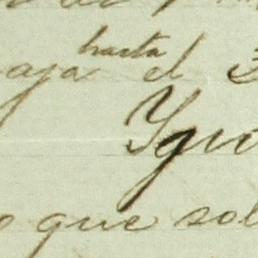 hasta
aja el 3
Ygu
o que sol